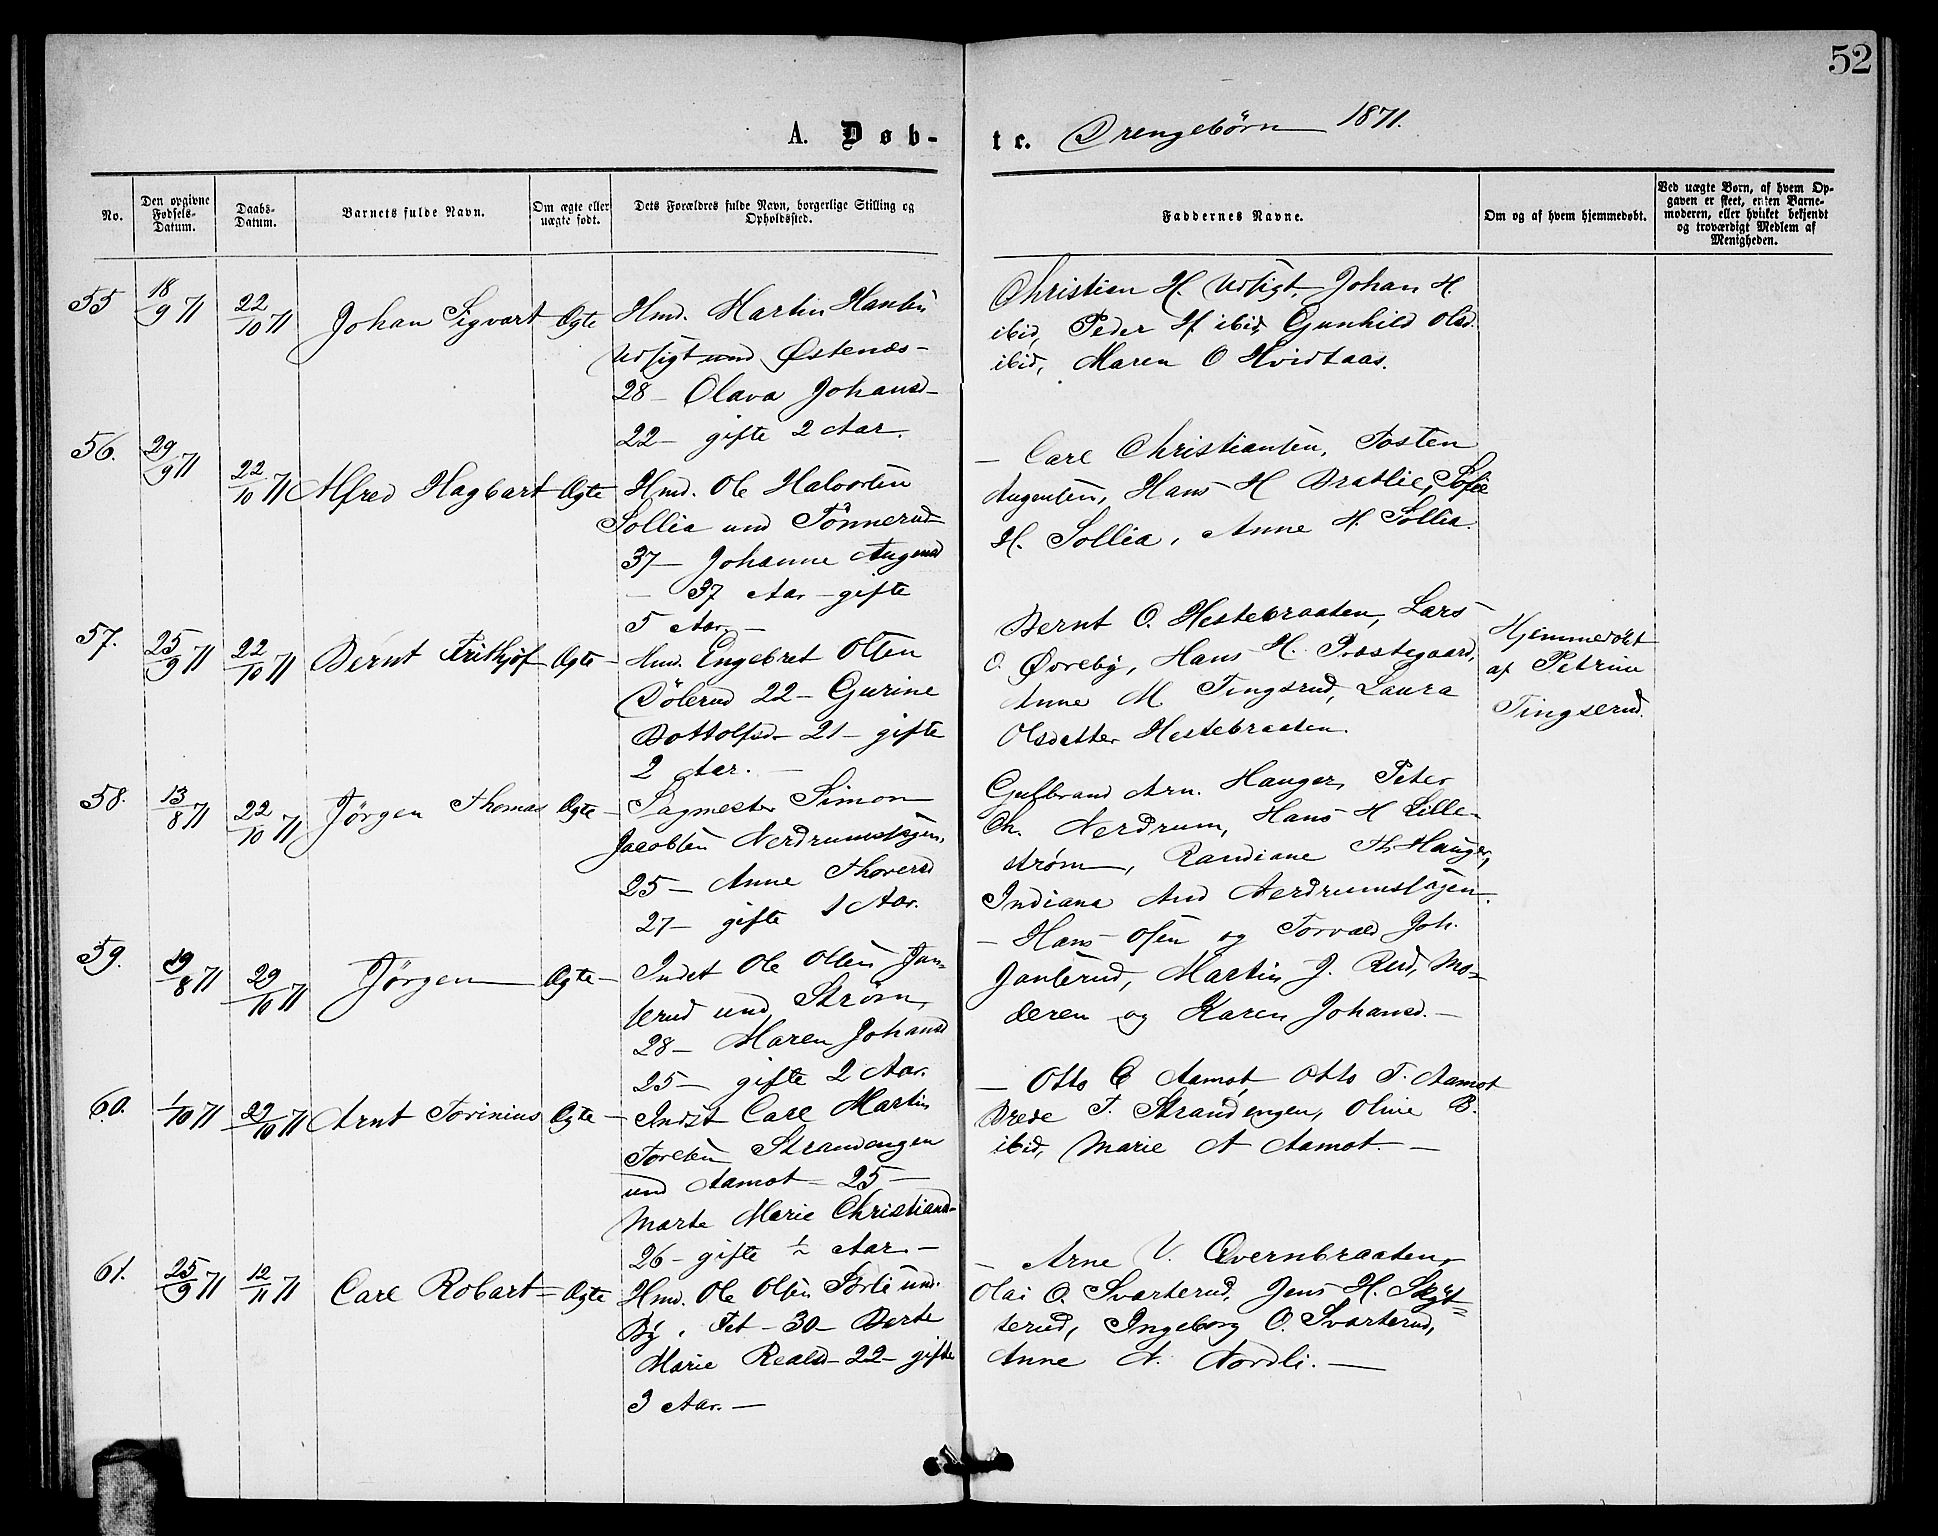 52
A. Døb-
te. Drengebørn 1871.
No.
Den opgivne Fødsels-Datum.
Daabs-Datum.
Barnets fulde Navn.
Om ægte eller uægte født.
Dets Forældres fulde Navn, borgerlige Stilling og Opholdssted.
Faddernes Navne.
Om og af hvem hjemmedøbt.
Ved uægte Børn, af hvem Opgaven er skeet, enten Barnemoderen, eller hvilket bekjendt og troværdigt Medlem af Menigheden.
55 18/9 71 22/10 71 Johan Sigvart Ægte
Hmd. Martin Hansen
Udsigt und Østenæs-
28 - Olava Johansd-
22 - gifte 2 Aar.
Christian H. Udsigt, Johan H.
ibid, Peder H ibid, Gunhild Olsd.
ibid, Maren O Hvidtaas.
56. 29/9 71 22/10 71 Alfred Hagbart Ægte
Hmd. Ole Halvorsen
Sollia und Tönnerud
37 - Johanne Augensd
- 37 Aar - gifte
5 Aar. -
- Carl Christiansen, Tosten
Augensen, Hans H Bratlie, Sofie
H. Sollia, Anne H. Sollia.
57. 25/9 71 22/10 71 Bernt Frithjof Ægte -
Hmd. Engebret Olsen
Dölerud 22 - Gurine
Bottolfsd - 21 - gifte
2 Aar. -
Bernt O. Hestebraaten, Lars
O. Øvreby, Hans H. Præstegaard,
Anne M Tingsrud, Laura
Olsdatter Hestebraaten.
Hjemmedøbt
af Petrine
Tingserud.
58. 13/8 71 22/10 71 Jörgen Thomas Ægte -
Sagmester Simon
Jacobsen Nerdrumssagen,
25 - Anne Thoversd
27 - gifte 1 Aar.
Gulbrand Arn. Hauger, Peter
Ch. Nerdrum, Hans H Lille-
strøm, Randiane Th Hauger,
Indiana And Nerdrumssagen.
59. 19/8 71 29/10 71 Jörgen Ægte -
Indst Ole Olsen Jan-
serud und Strøm,
28 - Maren Johansd
25 - gifte 2 Aar.
- Hans Olsen og Torvald Joh.
Janserud, Martin J. Rud, Mo-
deren og Karen Johansd. -
60. 1/10 71 29/10 71 Arnt Torinius Ægte -
Indst Carl Martin
Toresen Strandengen
und Aamot - 25 -
Marte Marie Christiansd-
26 - gifte ½ Aar -
- Otto C Aamot, Otto T. Aamot
Brede T. Strandengen, Oline B.
ibid, Marie A Aamot. -
61. 25/9 71 12/11 71 Carl Robart - Ægte
Hmd. Ole Olsen Sörli und.
By, Fet - 30 - Berte
Marie Realsd - 22 - gifte
3 Aar. -
- Arne V. Qvernbraaten,
Olai O. Svarterud, Jens H. Sky̆t-
terud, Ingeborg O. Svarterud,
Anne A. Nordli. -